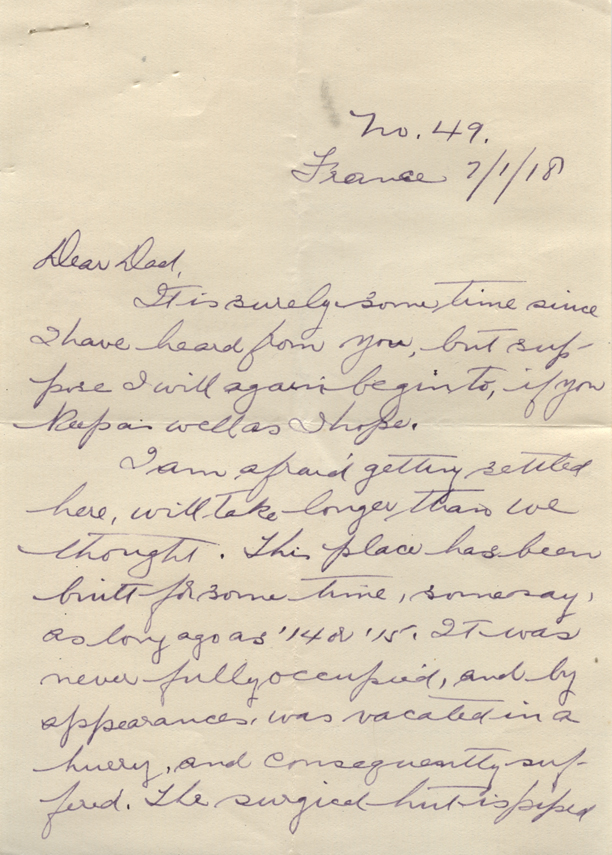 No. 49.
France 7/1/18
Dear Dad,
It is surely some time since
I have heard from you, but sup-
pose I will again begin to, if you
keep as well as I hope.
I am afraid getting settled
here, will take longer than we
thought. This place has been
built for some time, some say,
as long ago as '14 or '15. It was
never fully occupied, and by
appearances, was vacated in a
hurry, and consequently suf-
fered. The surgical hut is piped